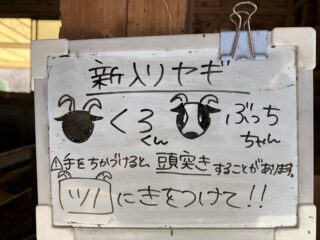 新入りヤギ
くろくん ぶっちちゃん
⚠手をちかづけると、頭突きすることがあります。
ツノにきをつけて!!